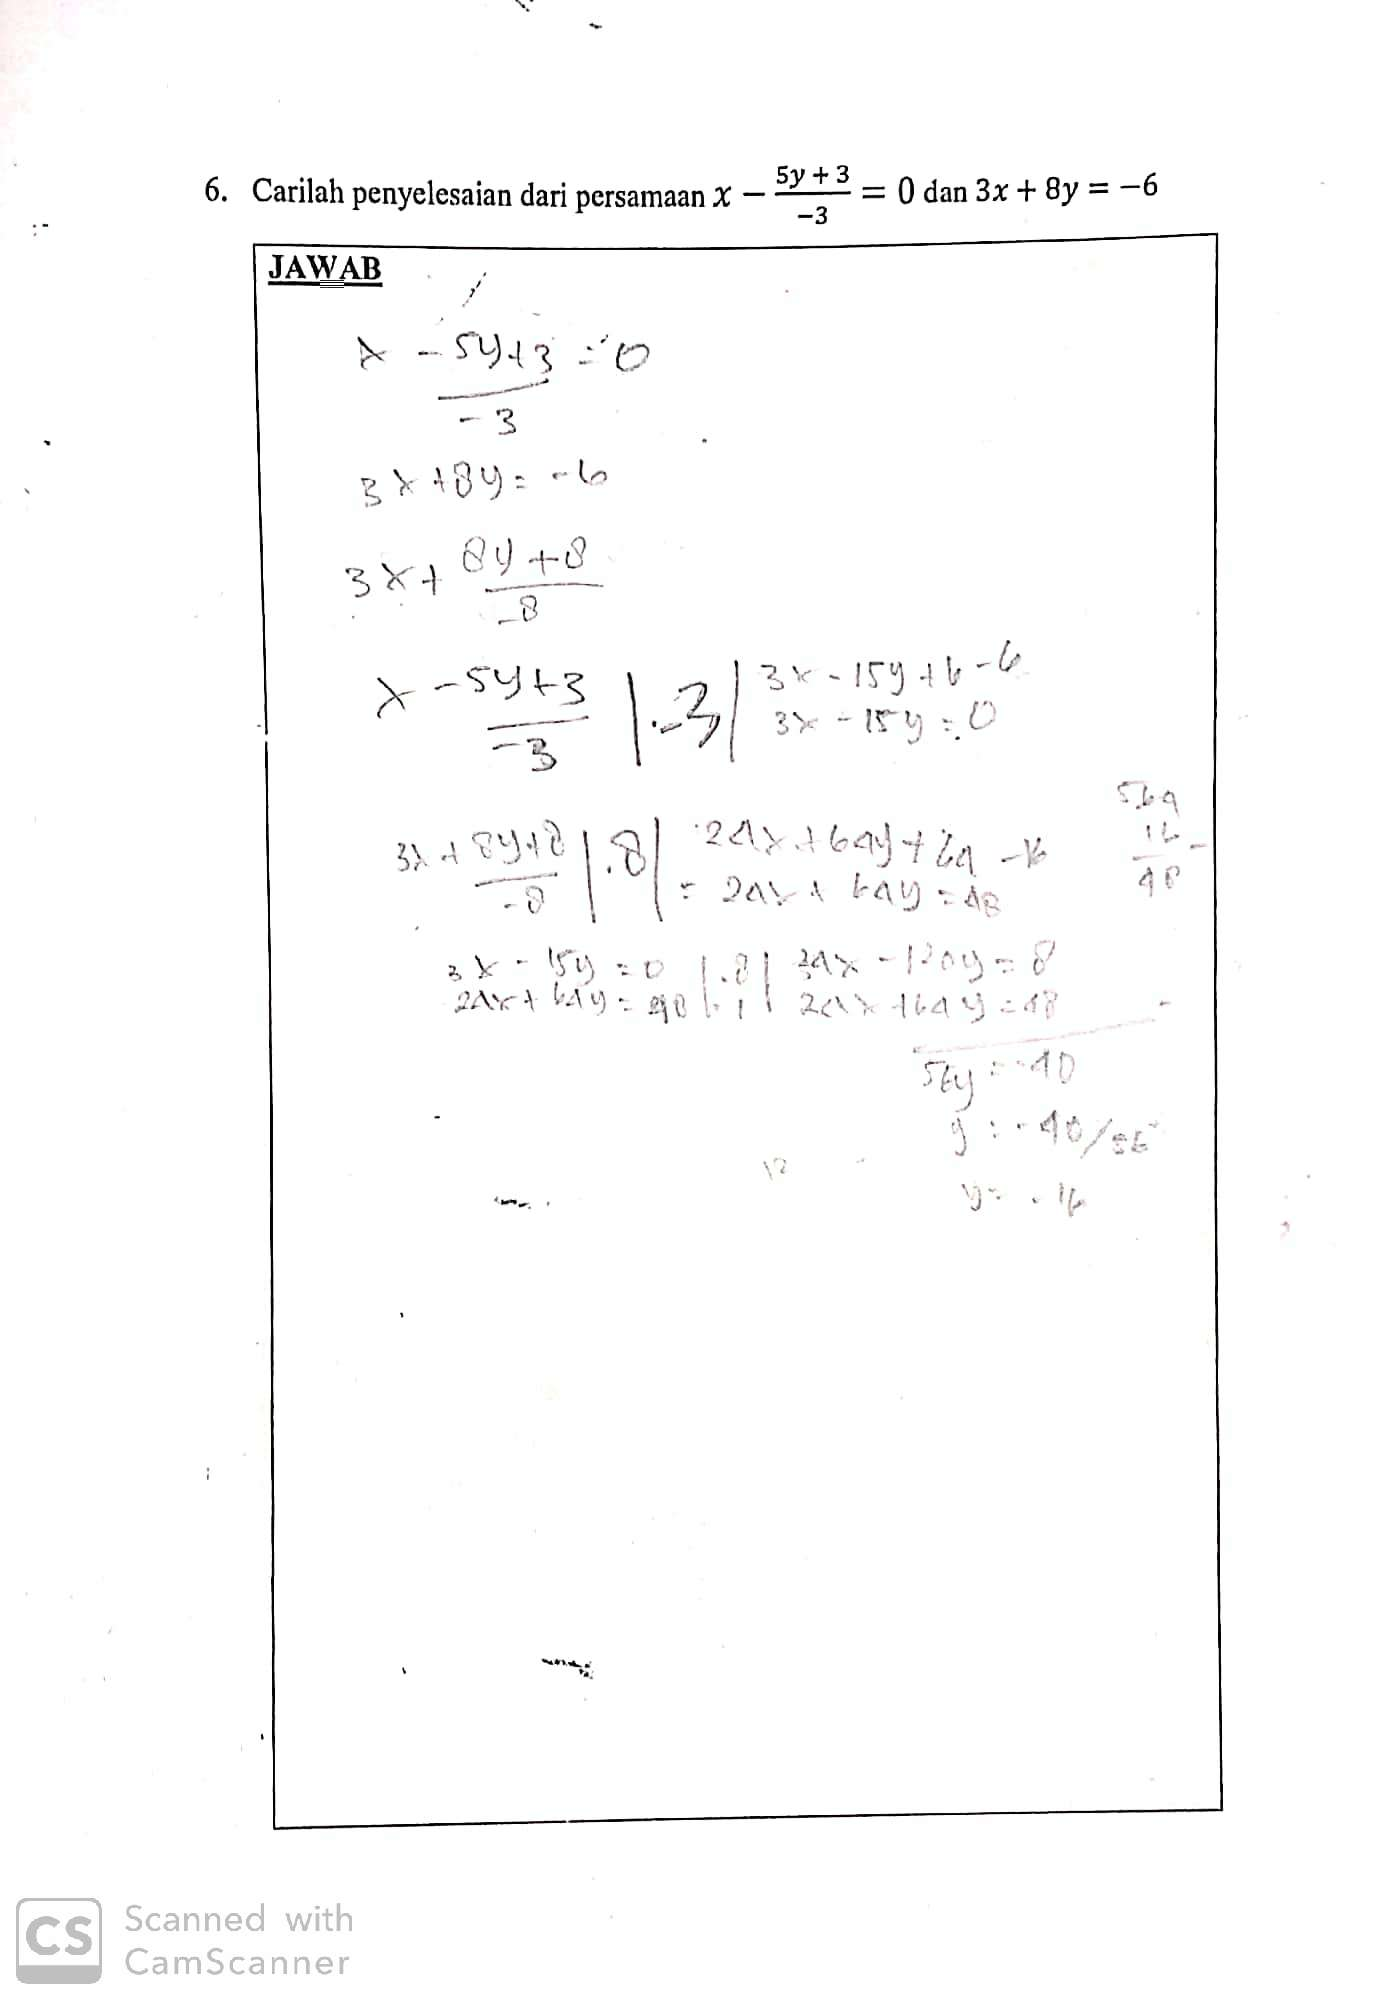 6. Carilah penyelesaian dari persamaan x − (5y + 3)/−3 = 0 dan 3x + 8y = −6
JAWAB
x - 5y+3 = 0
-3
3x + 8y = -6
3x + 8y + 8
-8
x - 5y+3 | .-3 | 3x - 15y + 6 - 6
-3 3x - 15y = 0
569
16 -
48
3x + 8y+8 | .8 | 24x + 64y + 64 - 16
-8 = 24x + 64y = 48
3x - 15y = 0 | .8 | 24x - 120y = 8
24x + 64y = 48 | .1 | 24x + 64y = 48 -
56y = -40
y = -40/56
12
y = -16
CS Scanned with
CamScanner